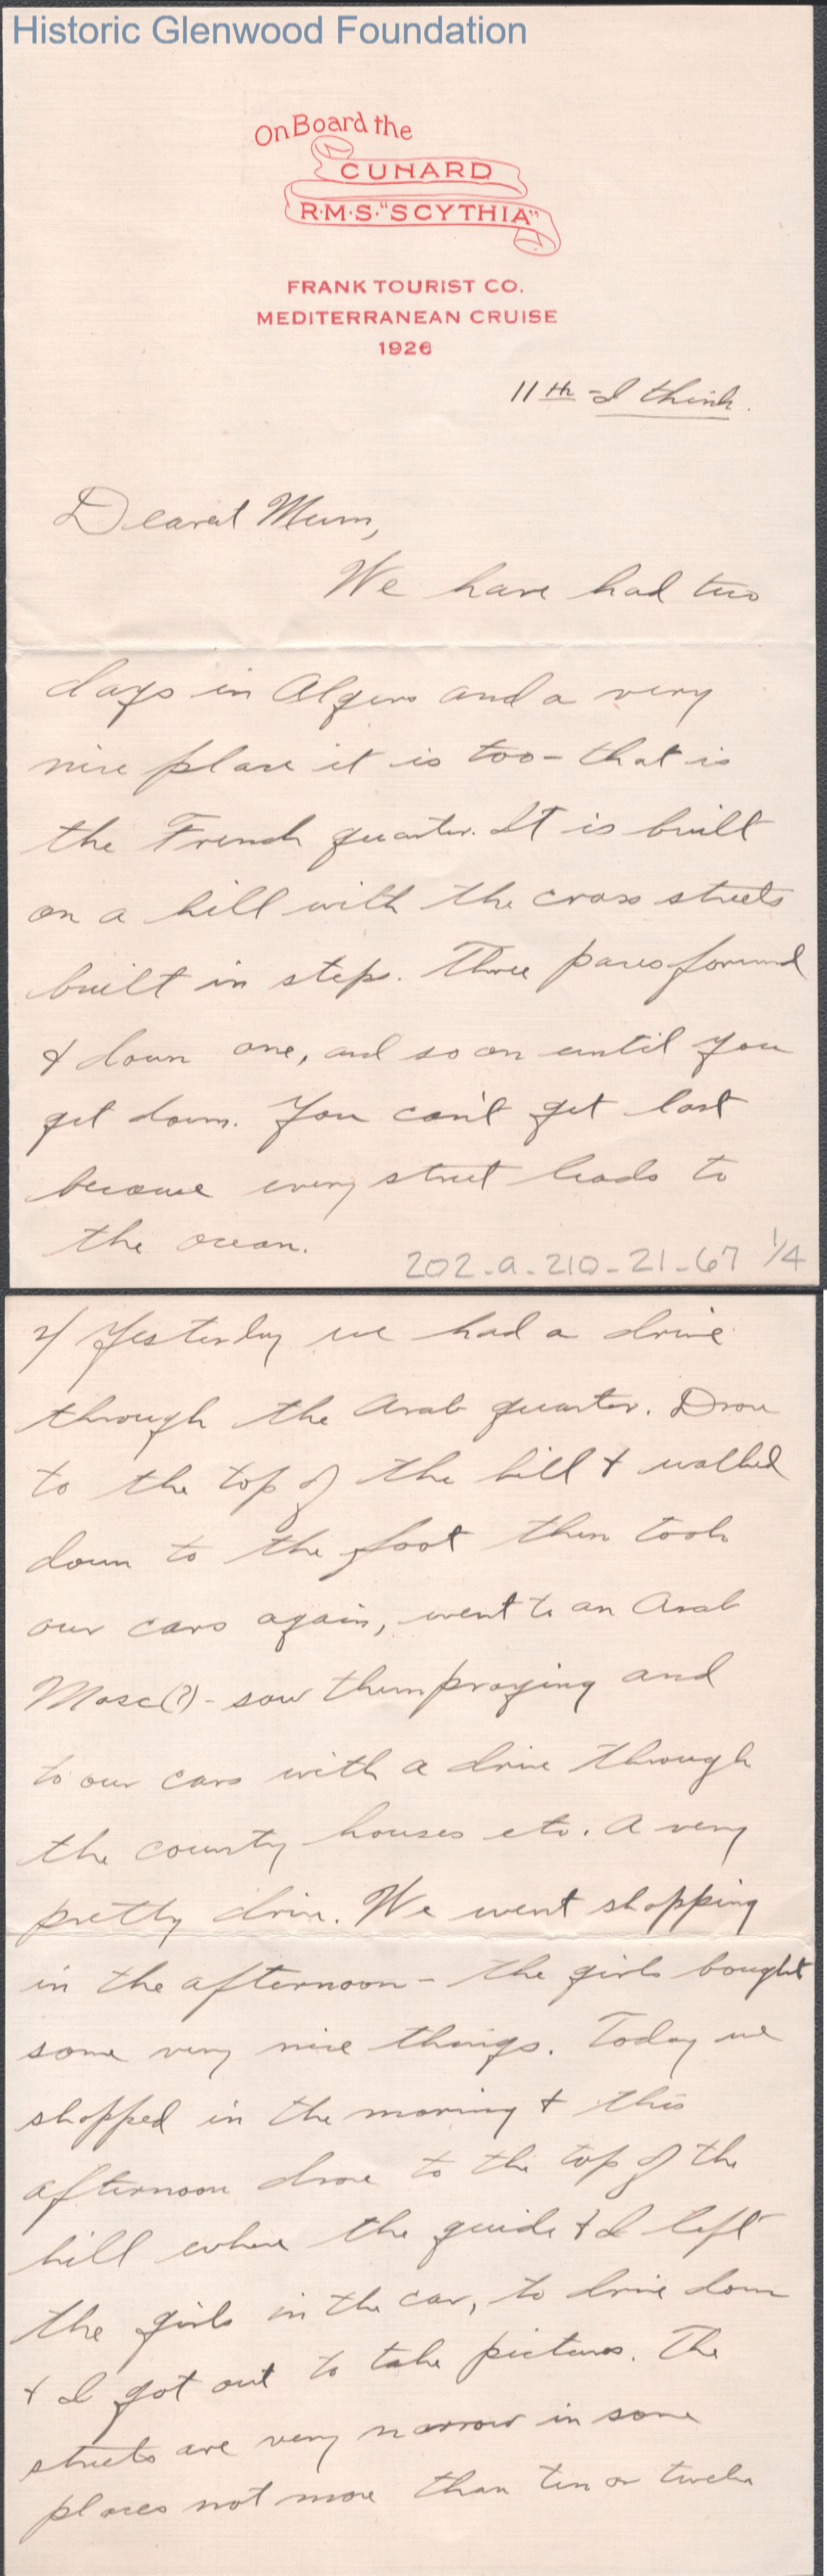 Historic Glenwood Foundation
On Board the
CUNARD
R·M·S·"SCYTHIA"
FRANK TOURIST CO.
MEDITERRANEAN CRUISE
1926
11th - I think.
Dearest Mum,
We have had two
days in Algiers and a very
nice place it is too - that is
the French quarter. It is built
on a hill with the cross streets
built in steps. Three paces forward
& down one, and so on until you
get down. You can't get lost
because every street leads to
the ocean.
202-a-210-21-67 1/4
2/ Yesterday we had a drive
through the Arab quarter. Drove
to the top of the hill & walked
down to the foot then took
our cars again, went to an Arab
Mosc(?) - saw them praying and
to our cars with a drive through
the county houses etc. A very
pretty drive. We went shopping
in the afternoon - the girls bought
some very nice things. Today we
shopped in the morning & this
afternoon drove to the top of the
hill where the guide & I left
the girls in the car, to drive down
& I got out to take pictures. The
streets are very narrow in some
places not more than ten or twelve